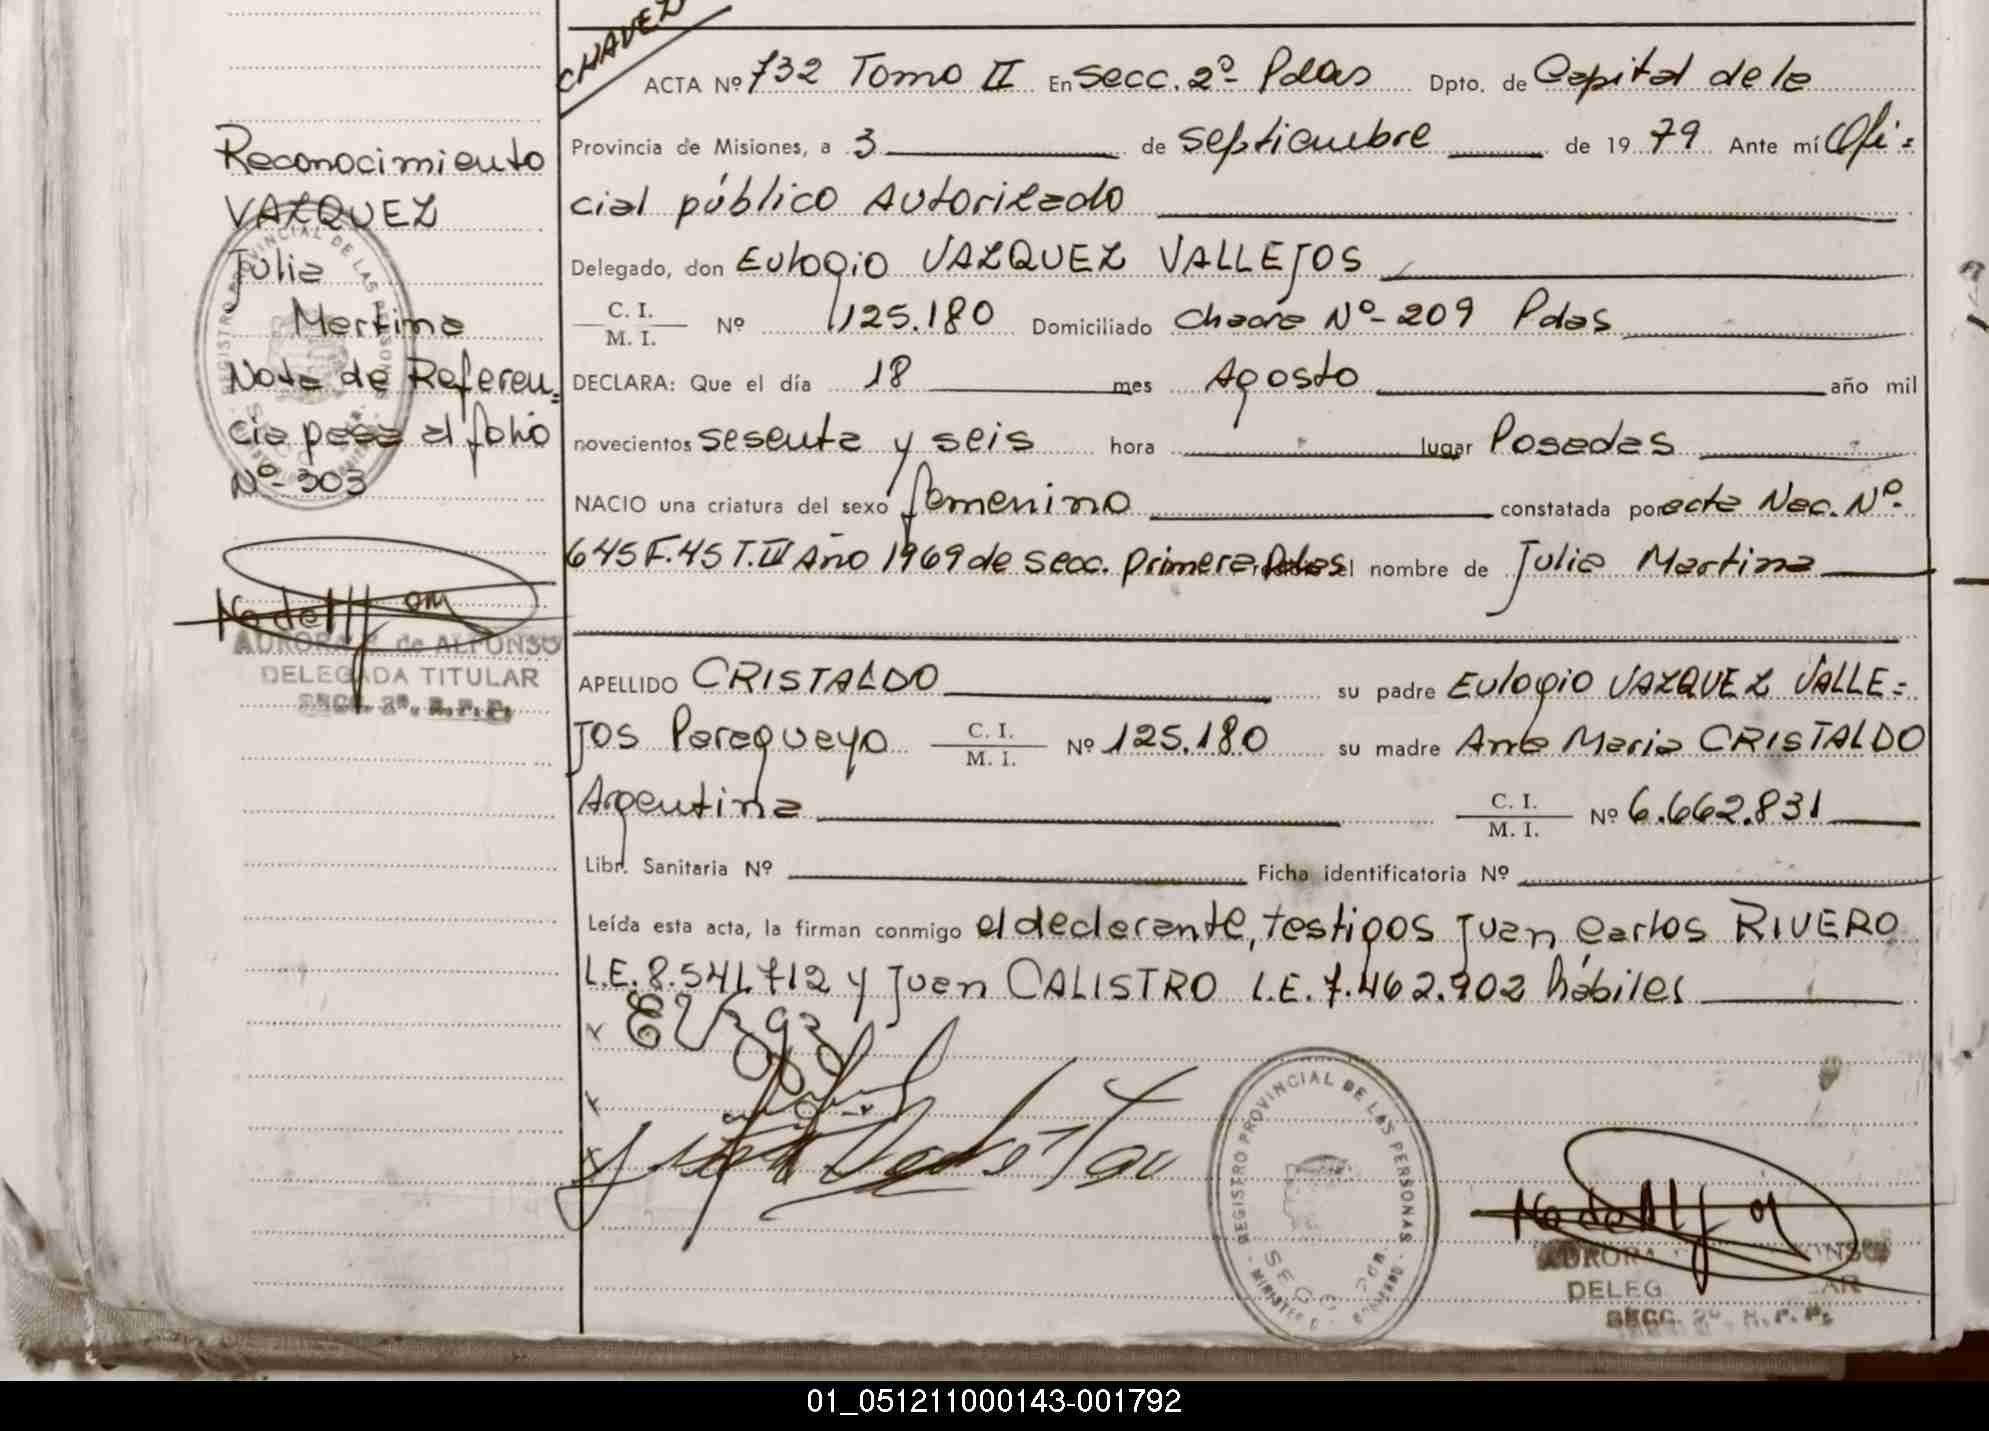 CHAVEZ
ACTA Nº 732 Tomo II En Secc. 2º Pdas Dpto. de Capital de la
Provincia de Misiones, a 3 de septiembre de 19 79 Ante mí Ofi=
cial público Autorizado
Delegado, don Eulogio VAZQUEZ VALLEJOS
C. I.
M. I. Nº 125.180 Domiciliado Chacra Nº- 209 Pdas
DECLARA: Que el día 18 mes Agosto año mil
novecientos sesenta y seis hora lugar Posadas
NACIO una criatura del sexo femenino constatada por acta Nac. Nº-
645 F.45 T.III Año 1969 de secc. primera Pdas el nombre de Julia Martina
APELLIDO CRISTALDO su padre Eulogio VAZQUEZ VALLE=
JOS Paraguayo C. I.
M. I. Nº 125.180 su madre Ana Maria CRISTALDO
Argentina C. I.
M. I. Nº 6.662.831
Libr. Sanitaria Nº Ficha identificatoria Nº
Leída esta acta, la firman conmigo el declarante, testigos Juan Carlos RIVERO
L.E. 8.541.712 y Juan CALISTRO L.E. 7.462.902 hábiles
Reconocimiento
VAZQUEZ
Julia
Martina
Nota de Referen=
cia pasa al folio
Nº- 303
REGISTRO PROVINCIAL DE LAS PERSONAS
AURORA de ALFONSO
DELEGADA TITULAR
SECC. 2º. R.P.P.
REGISTRO PROVINCIAL DE LAS PERSONAS
SECC 2da
AURORA
DELEG AR
SECC. 2º R.P.P.
01_051211000143-001792